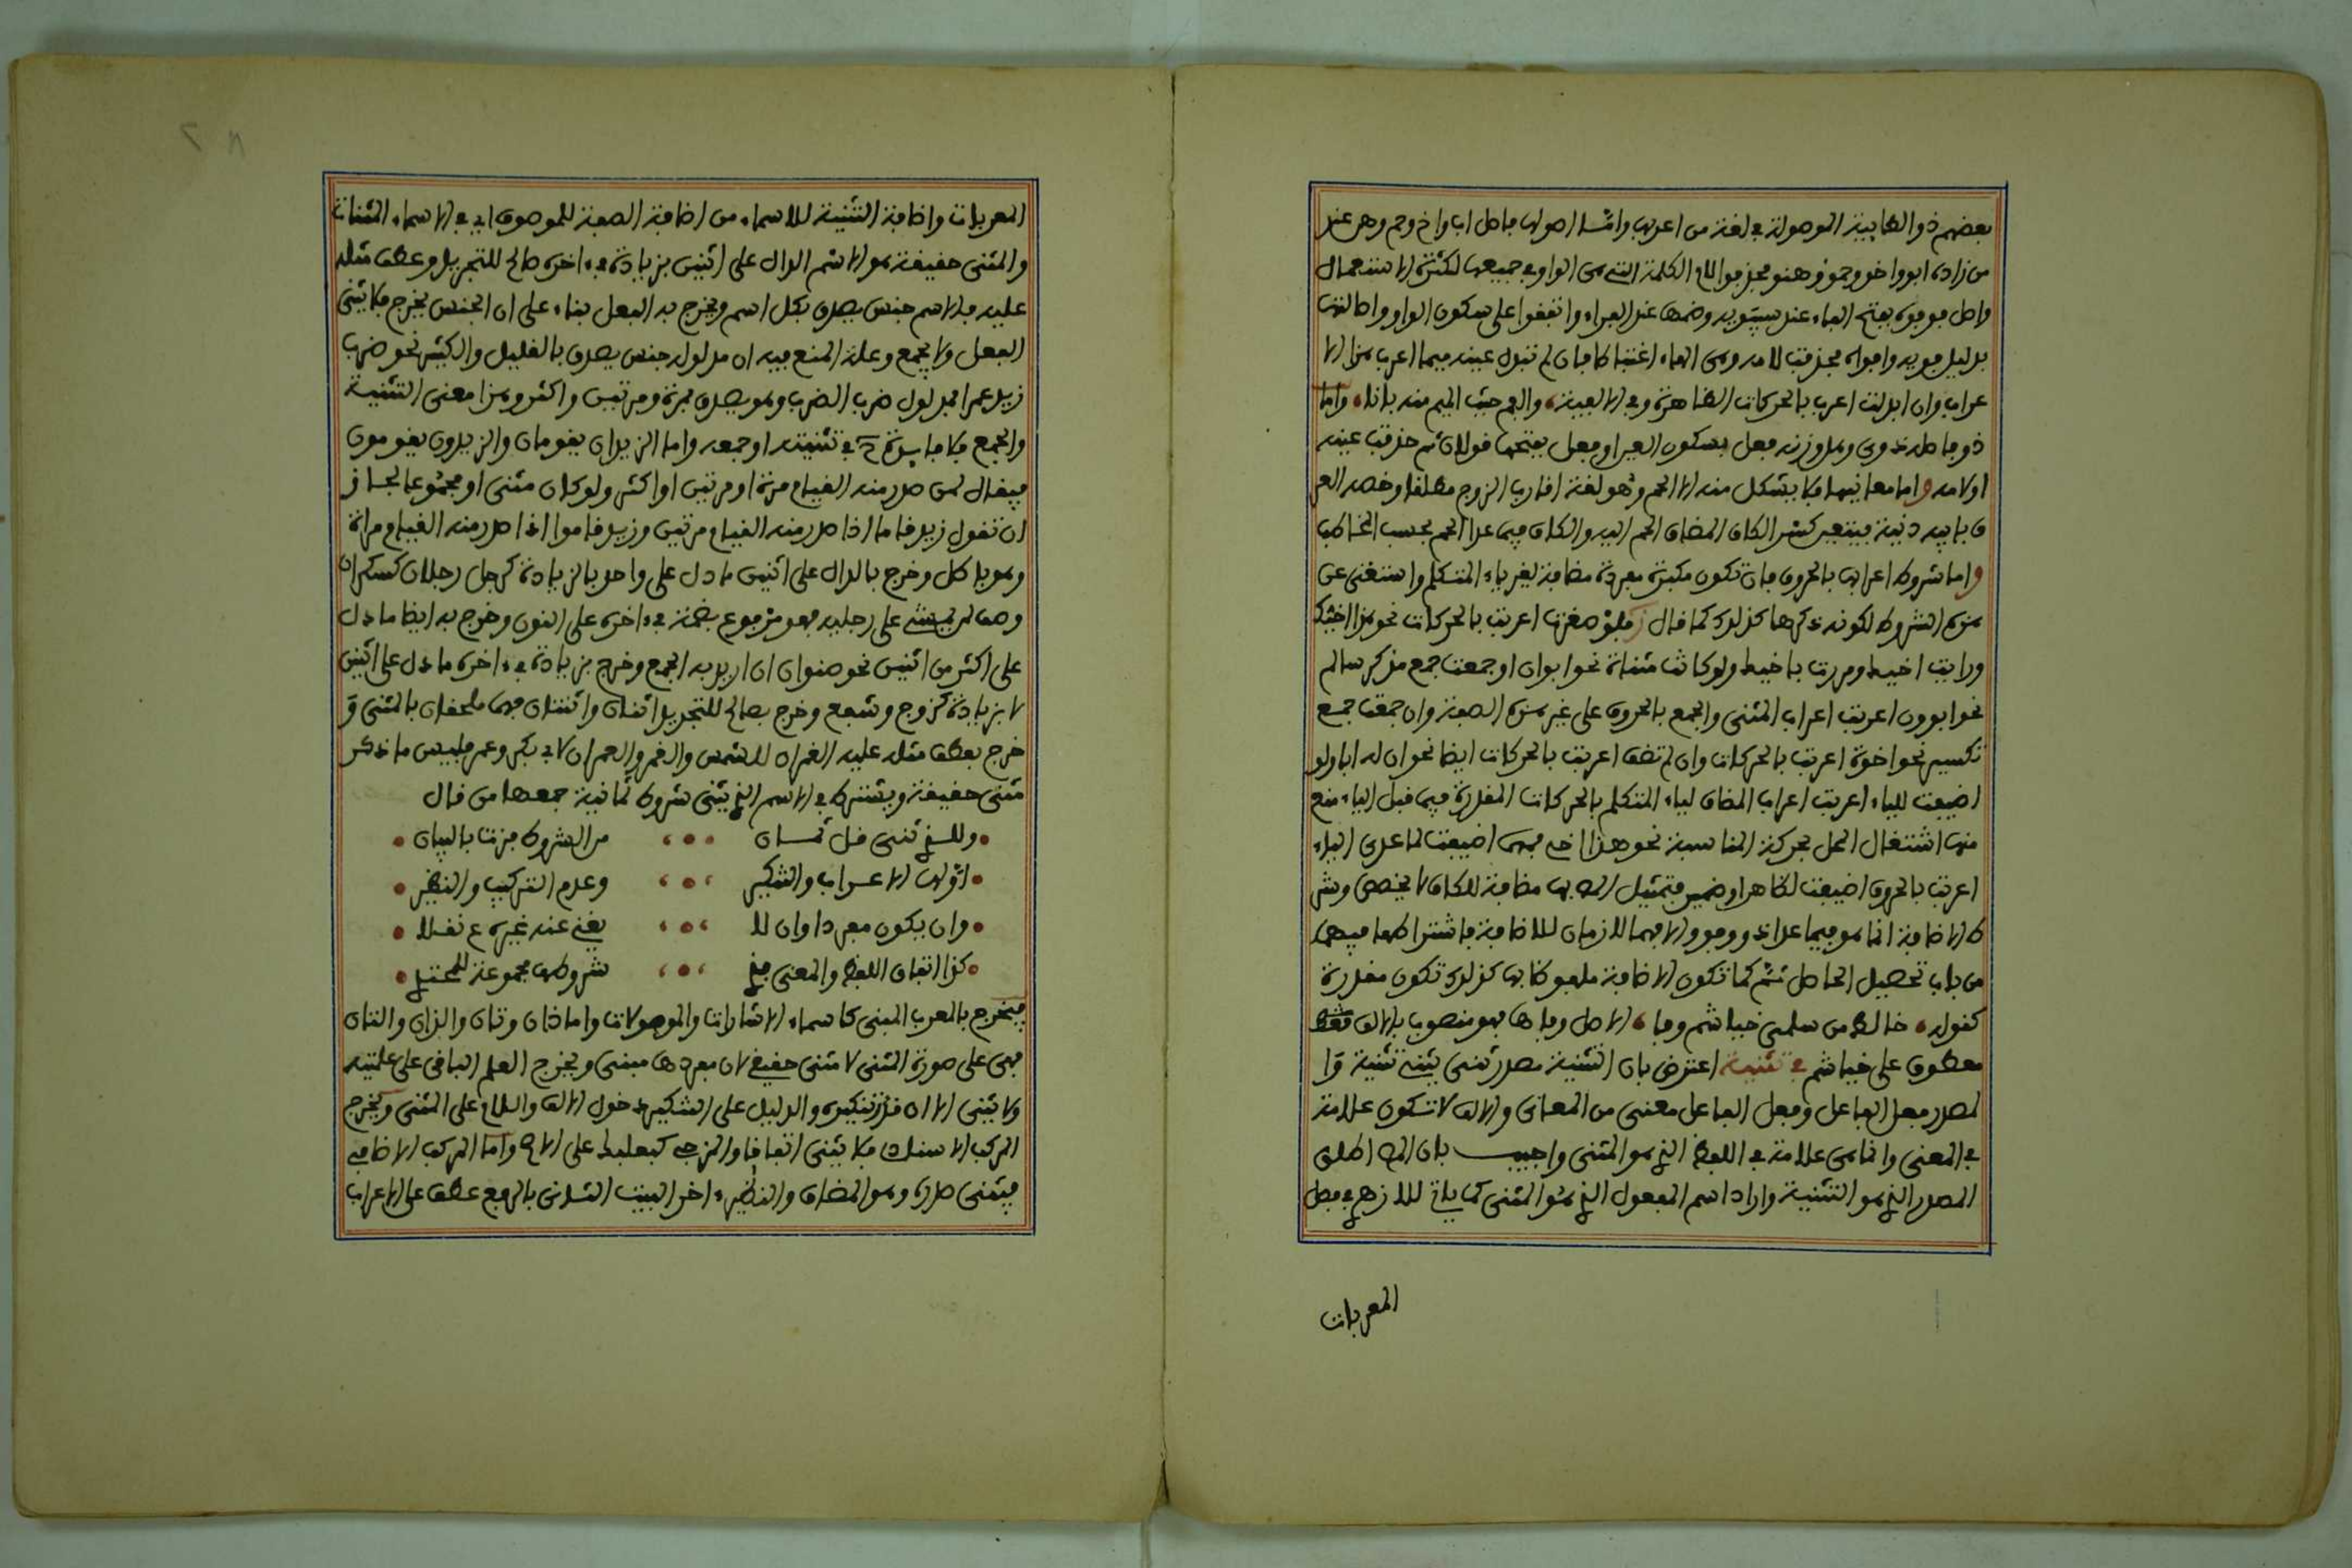 بعضهم ذو الطاييـة الموصولة في لغة من اعربها واما اصولها فاصل اب واخ وحم وهن عند
من زاده ابو واخو وحمو وهنو فحذفوا لام الكلمة التي هي الواو في جميعها لكثرة الاستعمال
واصل فو فوه بفتح الفاء عند سيبويه وضمها عند الفراء واتفقوا على سكون الواو واصالتها
بدليل فويه وافواه فحذفت لامه وهي الهاء اعتباطا فان لم تبدل عينه ميما اعرب هذا الا
عراب وان ابدلت اعرب بالحركات الظاهرة وفي الالفية والفم حيث الميم منه بانا واما
ذو فاصله ذوى وهل وزنه فعل بسكون العين او فعل بفتحها قولان ثم حذفت عينه
او لامه واما معانيها فلا يشكل منه الا الحم وهو لغة اقارب الزوج مطلقا وخصه العر
ف بابيه دنية فيتعين كسر الكاف المضاف الحم اليه والكاف فيما عدا الحم بحسب المخاطب
واما شروط اعرابها بالحروف فان تكون مكبرة مفردة مضافة لغير ياء المتكلم واستغنى عن
هذه الشروط لكونه ذكرها كذلك كما قال فلو صغرت اعربت بالحركات نحو هذا اخيك
ورايت اخيك ومررت باخيك ولو كانت مثناة نحو ابوان او جمعت جمع مذكر سالم
نحو ابوون اعربت اعراب المثنى والجمع بالحروف على غير هذه الصفة وان جمعت جمع
تكسير نحو اخوة اعربت بالحركات وان لم تضف اعربت بالحركات ايضا نحو ان له ابا ولو
اضيفت للياء اعربت اعراب المضاف لياء المتكلم بالحركات المقدرة فيما قبل الياء منع
منها اشتغال المحل بحركة المناسبة نحو هذا اخي فمهما اضيفت لما عدى الياء
اعربت بالحروف اضيفت لظاهر او ضمير فتمثيل المص بها مضافة للكاف لا يخصص وشر
ط الاضافة انما هو فيما عدا ذو وفو والا فهما لازمان للاضافة فاشتراطها فيهما
من باب تحصيل الحاصل ثم كما تكون الاضافة ملفوظا بها كذلك تكون مقدرة
كقوله خالط من سلمى خياشم وفا الاصل وفاها فهو منصوب بالالف
معطوف على خياشم في تثنية اعترض بان التثنية مصدر ثنى يثني تثنية وا
لمصدر فعل الفاعل وفعل الفاعل معنى من المعانى والالف لا تكون علامة
في المعنى وانما هي علامة في اللفظ الذي هو المثنى واجيب بان المص اطلق
المصدر الذي هو التثنية واراد اسم المفعول الذي هو المثنى كما ياتي للازهري في فصل
المعربات
المعربات واضافة التثنية للاسماء من اضافة الصفة للموصوف اي في الاسماء المثنات
والمثنى حقيقة هو الاسم الدال على اثنين بزيادة في اخره صالح للتجريد وعطف مثله
عليه فالاسم جنس يصدق بكل اسم ويخرج به الفعل بناء على ان الجنس يخرج فلا يثنى
الفعل ولا يجمع وعلة المنع فيه ان مدلوله جنس يصدق بالقليل والكثير نحو ضرب
زيد عمرا فمدلول ضرب الضرب وهو يصدق بمرة ومرتين واكثر وهذا معنى التثنية
والجمع فلا فايدة ح في تثنيته او جمعه واما الزيدان يقومان والزيدون يقومون
فيقال لمن صدر منه القيام مرة او مرتين او اكثر ولو كان مثنى او مجموعا لجاز
ان تقول زيد قاما اذا صدر منه القيام مرتين وزيد قاموا اذا صدر منه القيام مرات
وهو باطل وخرج بالدال على اثنين ما دل على واحد بالزيادة كرجل رجلان كسكران
وصف لم يمش على رجليه فهو مرفوع بضمة في اخره على النون وخرج به ايضا ما دل
على اكثر من اثنين نحو صنوان ان اريد به الجمع وخرج بزيادة في اخره ما دل على اثنين
لا بزيادة كزوج وشفع وخرج بصالح للتجريد اثنان واثنتان فهما ملحقان بالمثنى و
خرج بعطف مثله عليه القمران للشمس والقمر والعمران لابي بكر وعمر فليس ما ذكر
مثنى حقيقة ويشترط في الاسم الذي يثنى شروط ثمانية جمعها من قال
وللذي ثنى قل ثمان من الشروط فزت بالبيان
اولها الاعراب والتنكير وعدم التركيب والنظير
وان يكون مفردا وان لا يغني عنه غيره ع نقلا
كذا اتفاق اللفظ والمعنى فذي شروطها مجموعة للمحتذي
فيخرج بالمعرب المبنى كاسماء الاشارات والموصولات واما ذان وتان والذان والتان
فهي على صورة المثنى لا مثنى حقيقي لان مفردها مبنى ويخرج العلم الباقى على علميته
ولا يثنى الا ان قدر تنكيره والدليل على التنكير دخول الالف واللام على المثنى ويخرج
المركب الاسنادي فلا يثنى اتفاقا والمزجي كبعلبك على الاصح واما المركب الاضافي
فيثنى صدره وهو المضاف والنظير اخر البيت الثاني بالرفع عطف على الاعراب